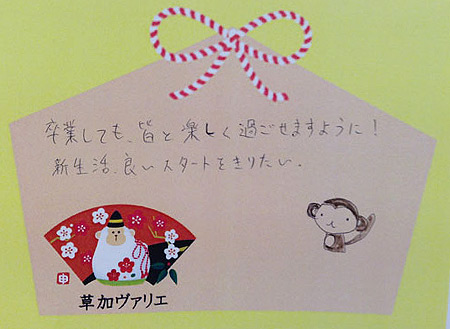 卒業しても、皆と楽しく過ごせますように!
新生活、良いスタートをきりたい。
申
草加ヴァリエ